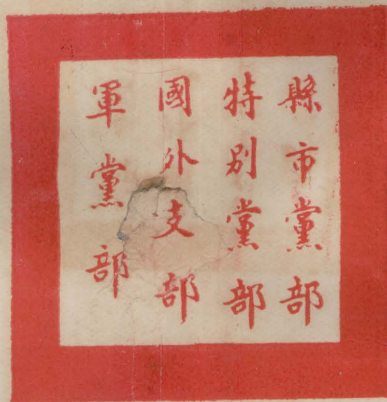 縣市黨部
特別黨部
國外支部
軍黨部